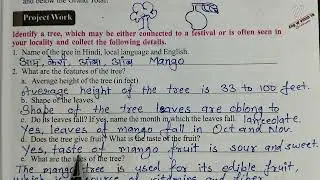 and below the Grand Total.
Project Work
Identify a tree, which may be either connected to a festival or is often seen in
your locality and collect the following details.
1. Name of the tree in Hindi, local language and English.
आम, केरी, आंबा, आंब Mango
2. What are the features of the tree?
a. Average height of the tree (in feet)
Average height of the tree is 33 to 100 feet.
b. Shape of the leaves.
Shape of the tree leaves are oblong to
c. Do its leaves fall? If yes, name the month in which the leaves fall. lanceolate.
Yes, leaves of mango fall in Oct and Nov.
d. Does the tree give fruit? What is the taste of the fruit?
Yes, taste of mango fruit is sour and sweet.
e. What are the uses of the tree?
The mango tree is used for its edible fruit,